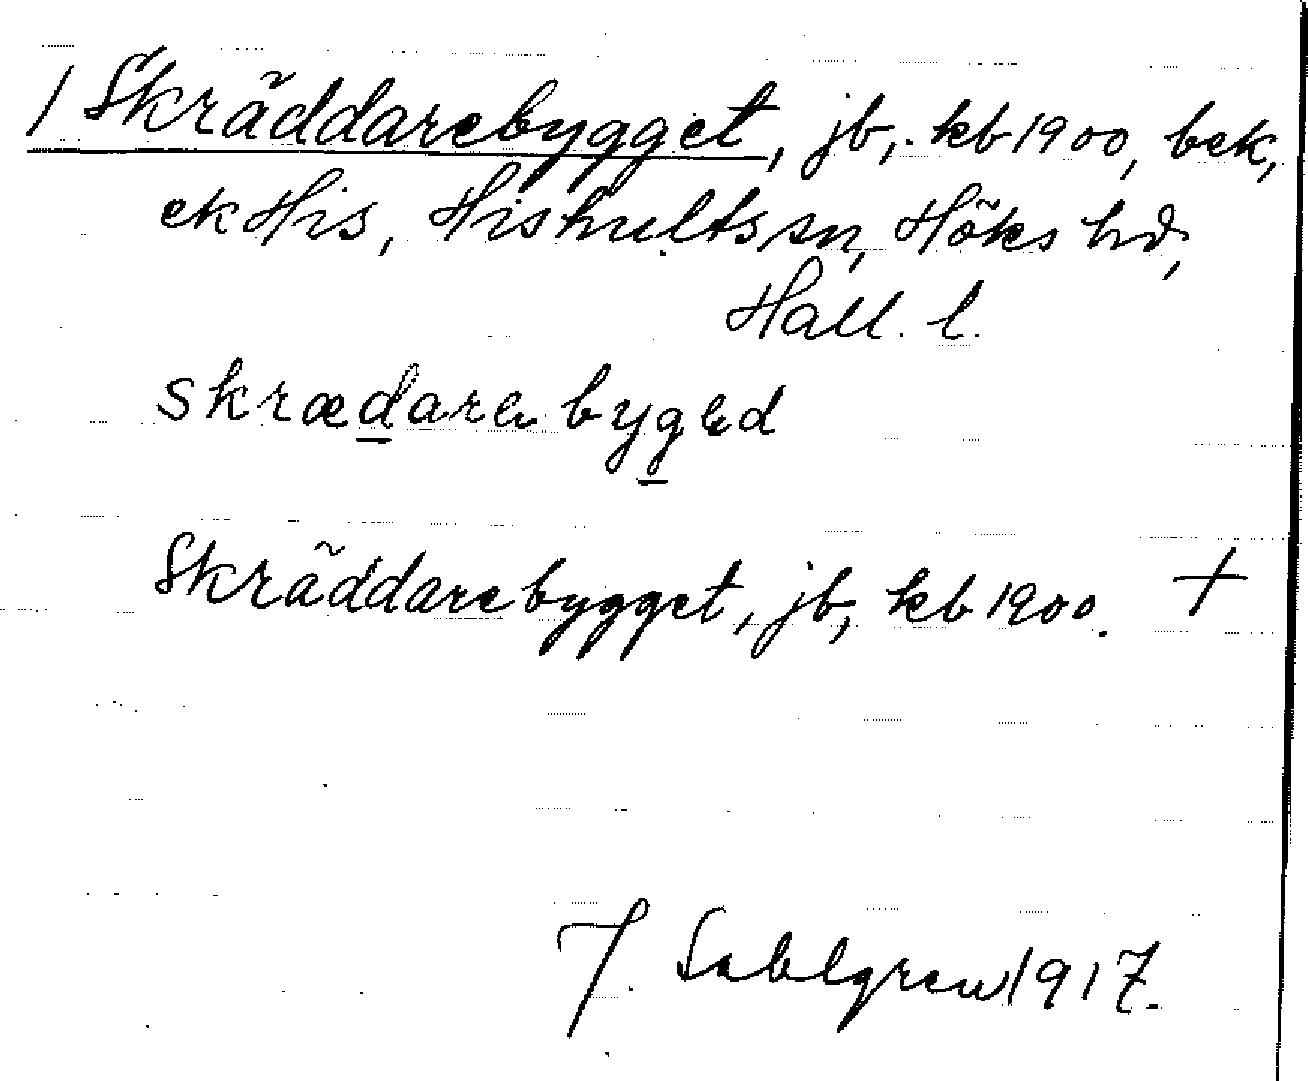 / Skräddarebygget, jb, kb 1900, bek,
ek His, Hishults sn, Höks hd,
Hall. l.
skrædarebyged
Skräddarebygget, jb, kb 1900. +
J. Sahlgren 1917.